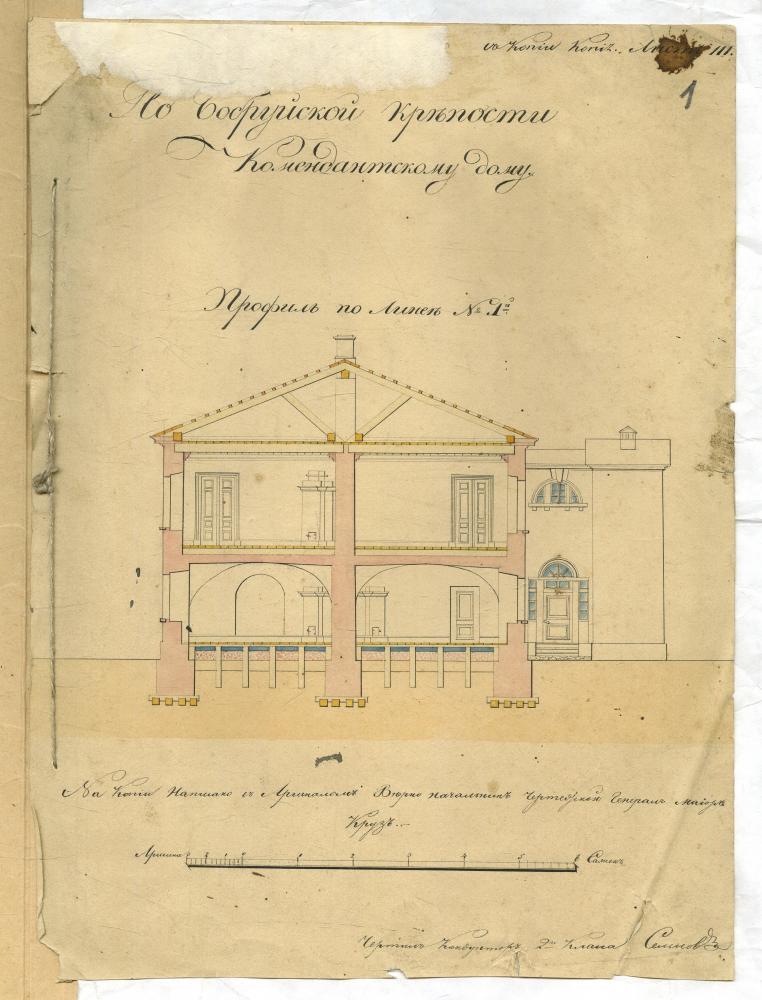 съ Копіи Копія. Листъ III.
1
По Бобруйской Крѣпости
Комендантскому дому.
Профиль по Линеѣ № 1й
На Копіи Написано съ Аргиналомъ Вѣрно начальникъ Чертежной Генералъ Маіоръ
Крузъ.
Аршина 0 1 2 3 4 5 6 Саженъ
Чертилъ Кондукторъ 2го Класа Семенов